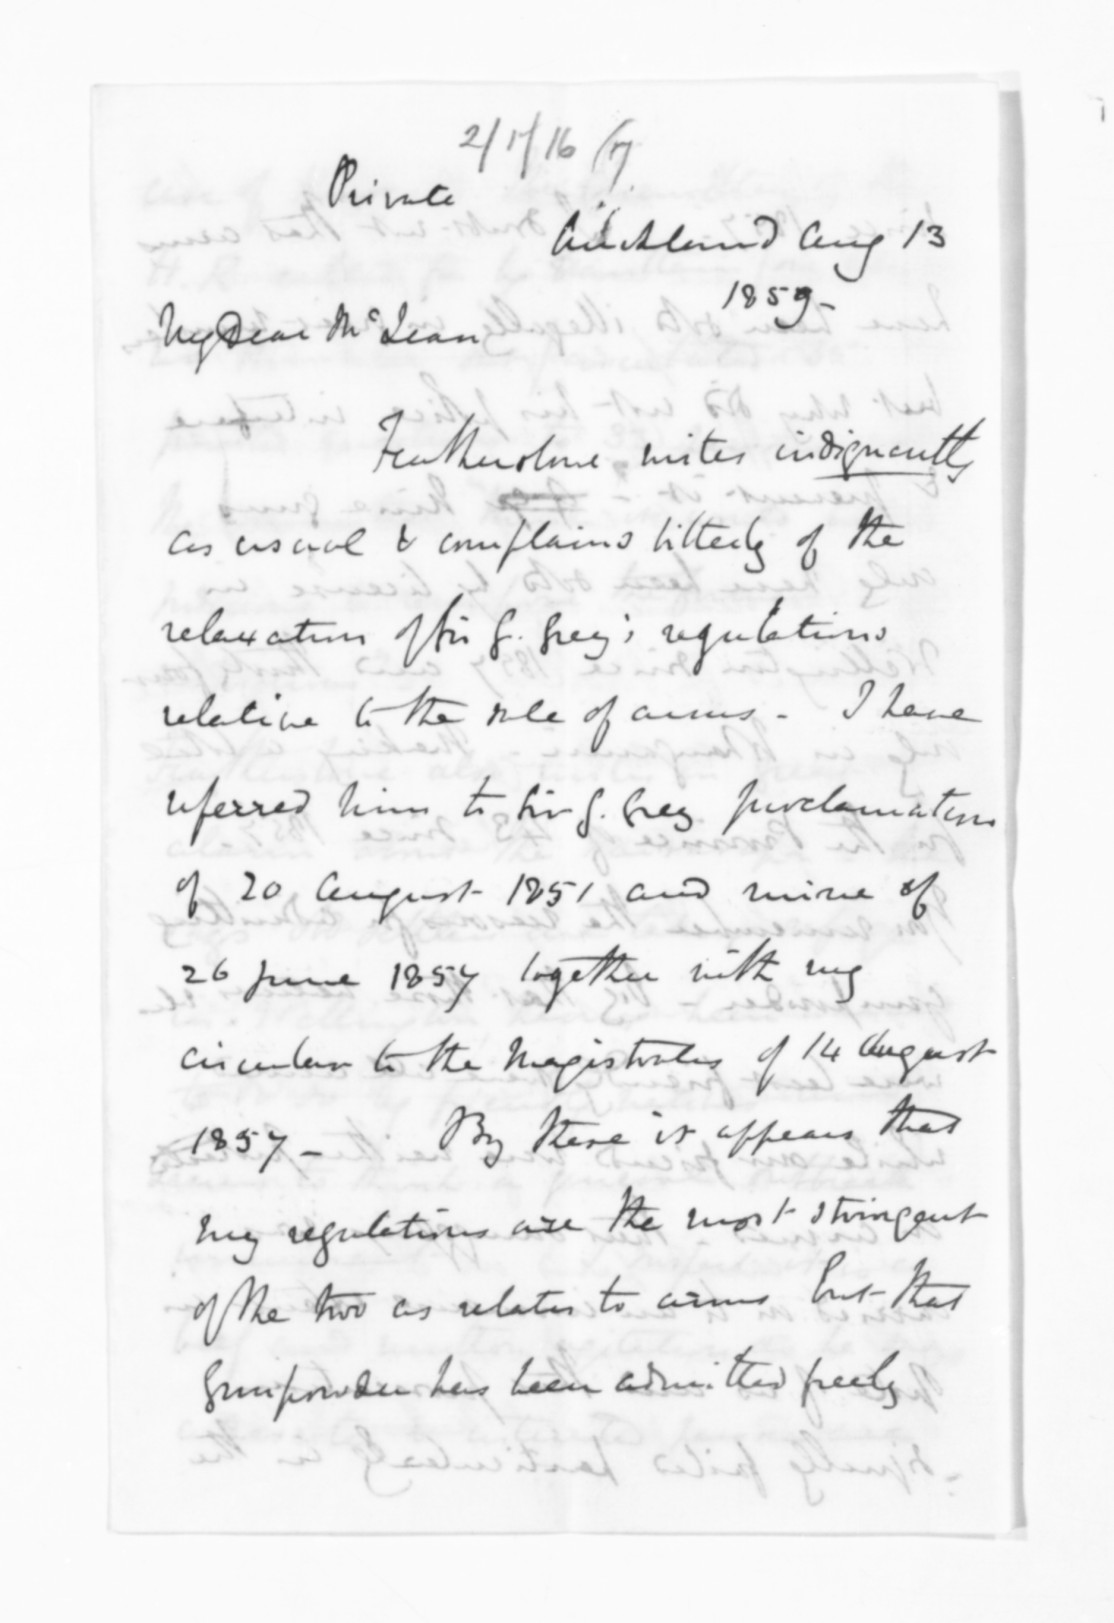 2/1/16 (7)
Private
Auckland Aug 13
1859-
My Dear McLean
Featherstone writes indignantly
as usual & complains bitterly of the
relaxation of Sir G. Grey's regulations
relative to the sale of arms - I have
referred him to Sir G. Grey proclamation
of 20 August 1851 and mine of
26 June 1857 together with my
circular to the Magistrates of 14 August
1857 - By these it appears that
my regulations are the most stringent
of the two as relates to arms but that
Gunpowder has been admitted freely